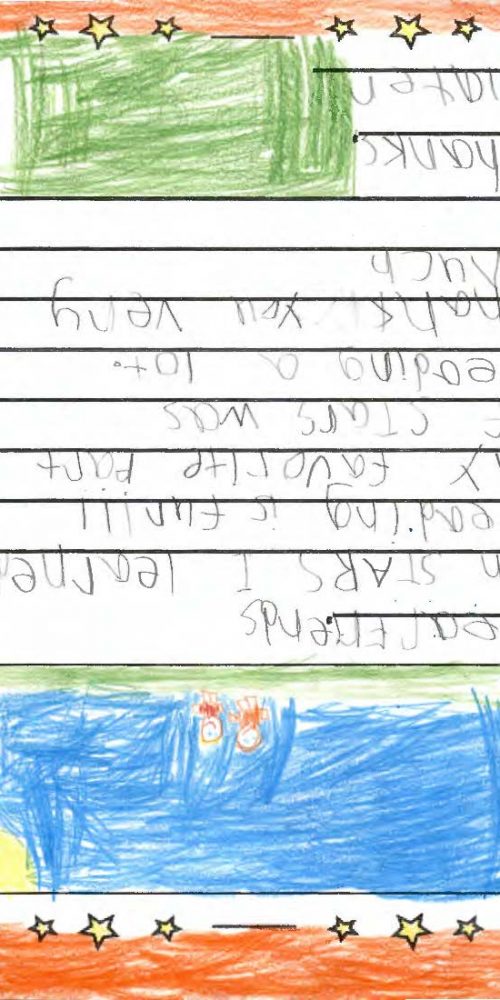 ear Friends
n STARS I learne
eading is funill
y favorite Part
f STARS was
eading a lot.
hank you very
Much
hanks